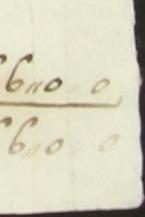 6,,0 0
6,,0 0